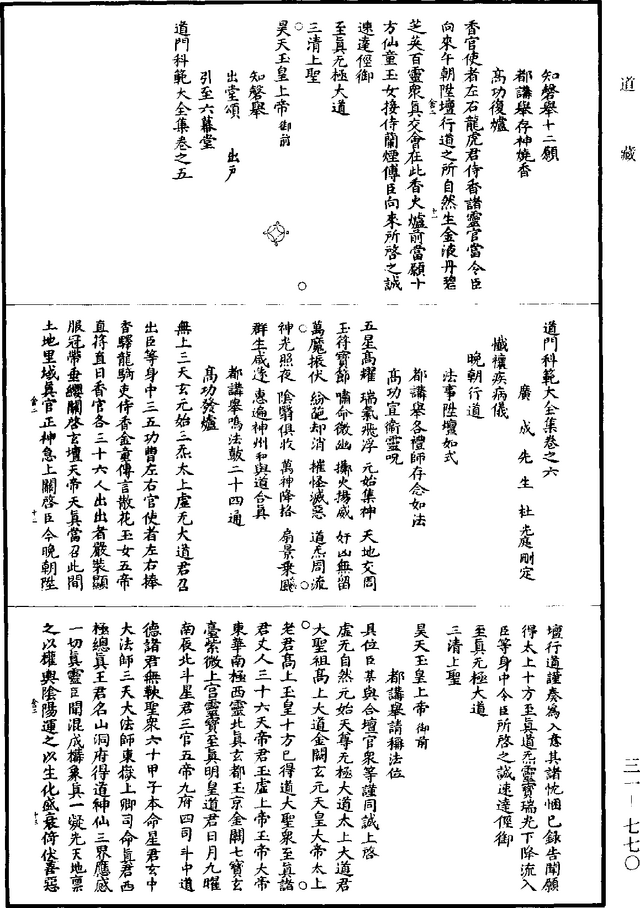 道藏
知磬舉十二願
都講舉存神燒香
高功復爐
香官使者左右龍虎君侍香諸靈官當令臣
向來午朝陞壇行道之所自然生金液丹碧
芝英百靈衆真交會在此香火爐前當願十
方仙童玉女接侍蘭煙傳臣向來所啓之誠
速達徑御
至真无極大道
三清上聖
昊天玉皇上帝御前
知磬舉
出堂頌　出戶
引至六幕堂
道門科範大全集卷之五
道門科範大全集卷之六
廣成先生杜光庭刪定
懺禳疾病儀
晚朝行道
法事陞壇如式
都講舉各禮師存念如法
高功宣衛靈呪
五星高耀　瑞氣飛浮　元始集神　天地交周
玉符寶節　嘯命徵幽　擲火揚威　奸凶無留
萬魔振伏　紛葩却消　摧怪滅惡　道炁周流
神光照夜　陰翳俱收　萬神降格　扇景乘飈
群生咸遂　惠遍神州　和與道合真
都講舉鳴法鼓二十四通
高功發爐
無上三天玄元始三炁太上虛无大道君召
出臣等身中三五功曹左右官使者左右捧
香驛龍騎吏侍香金童傳言散花玉女五帝
直符直日香官各三十六人出出者嚴裝顯
服冠帶垂纓關啓玄壇天帝天真當召此間
土地里域真官正神急上關啓臣今晚朝陞
壇行道謹奏爲入意其諸忱悃已錄告聞願
得太上十方至真道炁靈寶瑞光下降流入
臣等身中令臣所啓之誠速達徑御
至真无極大道
三清上聖
昊天玉皇上帝御前
都講舉請稱法位
具位臣某與合壇官衆等謹同誠上啓
虛无自然元始天尊无極大道太上大道君
大聖祖高上大道金闕玄元天皇大帝太上
老君高上玉皇十方已得道大聖衆至真諸
君丈人三十六天帝君玉虛上帝玉帝大帝
東華南極西靈北真玄都玉京金闕七寶玄
臺紫微上宮靈寶至真明皇道君日月九曜
南辰北斗星君三官五帝九府四司斗中道
德諸君無鞅聖衆六十甲子本命星君玄中
大法師三天大法師東嶽上卿司命真君西
極總真王君名山洞府得道神仙三界應感
一切真靈臣聞混成構象真一凝先天地稟
之以權輿陰陽運之以生化盛衰倚伏善惡
三一—七七〇